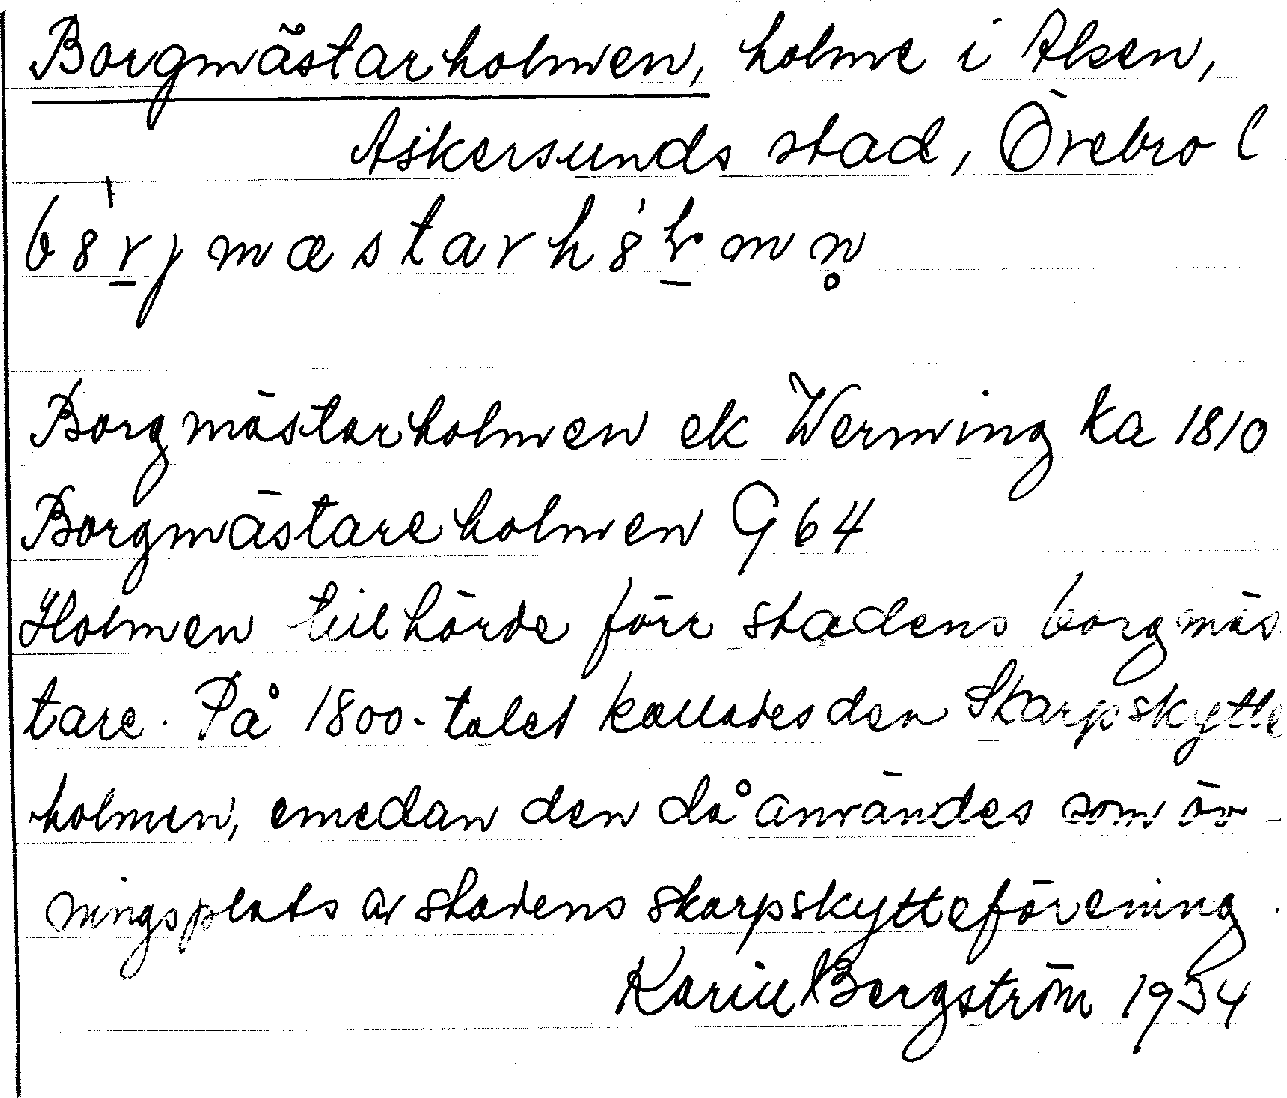 Borgmästarholmen, holme i Alsen,
Askersunds stad, Örebro l
b8rjmæstarh8lmn̥
Borgmästarholmen ek Werming ka 1810
Borgmästareholmen G 64
Holmen tillhörde förr stadens borgmäs
tare. På 1800-talet kallades den Skarpskytte
holmen, emedan den då användes som öv-
ningsplats av stadens skarpskytteförening.
Karin Bergström 1954